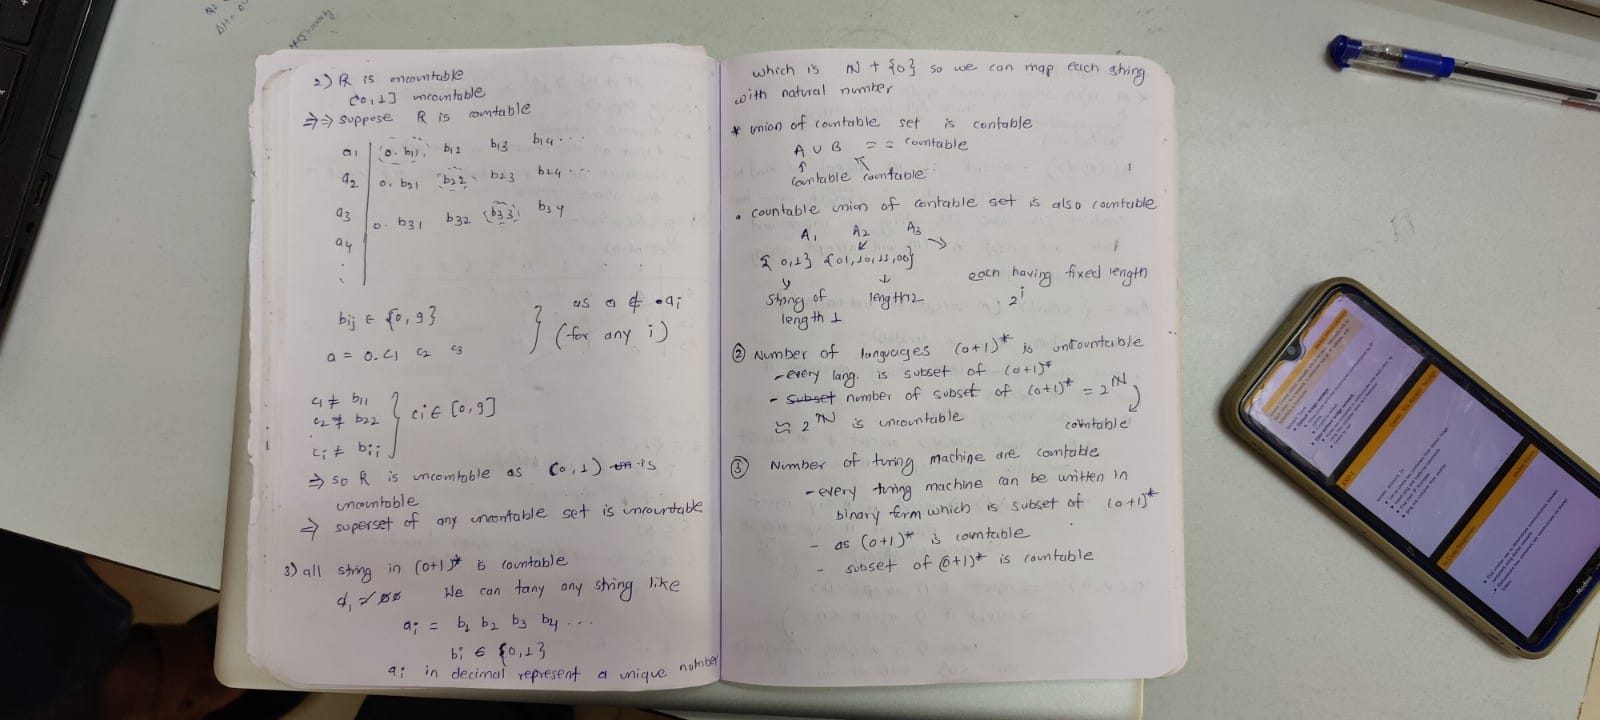 2) R is uncountable
(0,1] uncountable
⇒⇒ suppose R is countable
a1 0. b11 b12 b13 b14 ...
a2 0. b21 b22 b23 b24 ...
a3 0. b31 b32 b33 b34
a4
bij ∈ {0,9}
a = 0. c1 c2 c3
as a ∉ ai
(for any i)
c1 ≠ b11
c2 ≠ b22
ci ≠ bii
ci ∈ [0,9]
⇒ so R is uncountable as (0,1) is
uncountable
⇒ superset of any uncontable set is uncountable
3) all string in (0+1)* is countable
We can any string like
ai = b1 b2 b3 b4 ...
bi ∈ {0,1}
ai in decimal represent a unique number
which is N + {0} so we can map each string
with natural number
* union of countable set is contable
A ∪ B = = countable
countable countable
• countable union of contable set is also countable
A1 A2 A3
{0,1} {01,10,11,00}
each having fixed length
string of
length 1
length 2
2^i
② Number of languages (0+1)* is uncountable
- every lang. is subset of (0+1)*
- subset number of subset of (0+1)* = 2^N
2^N is uncountable
countable
③ Number of turing machine are countable
- every turing machine can be written in
binary form which is subset of (0+1)*
- as (0+1)* is countable
- subset of (0+1)* is countable
Redmi